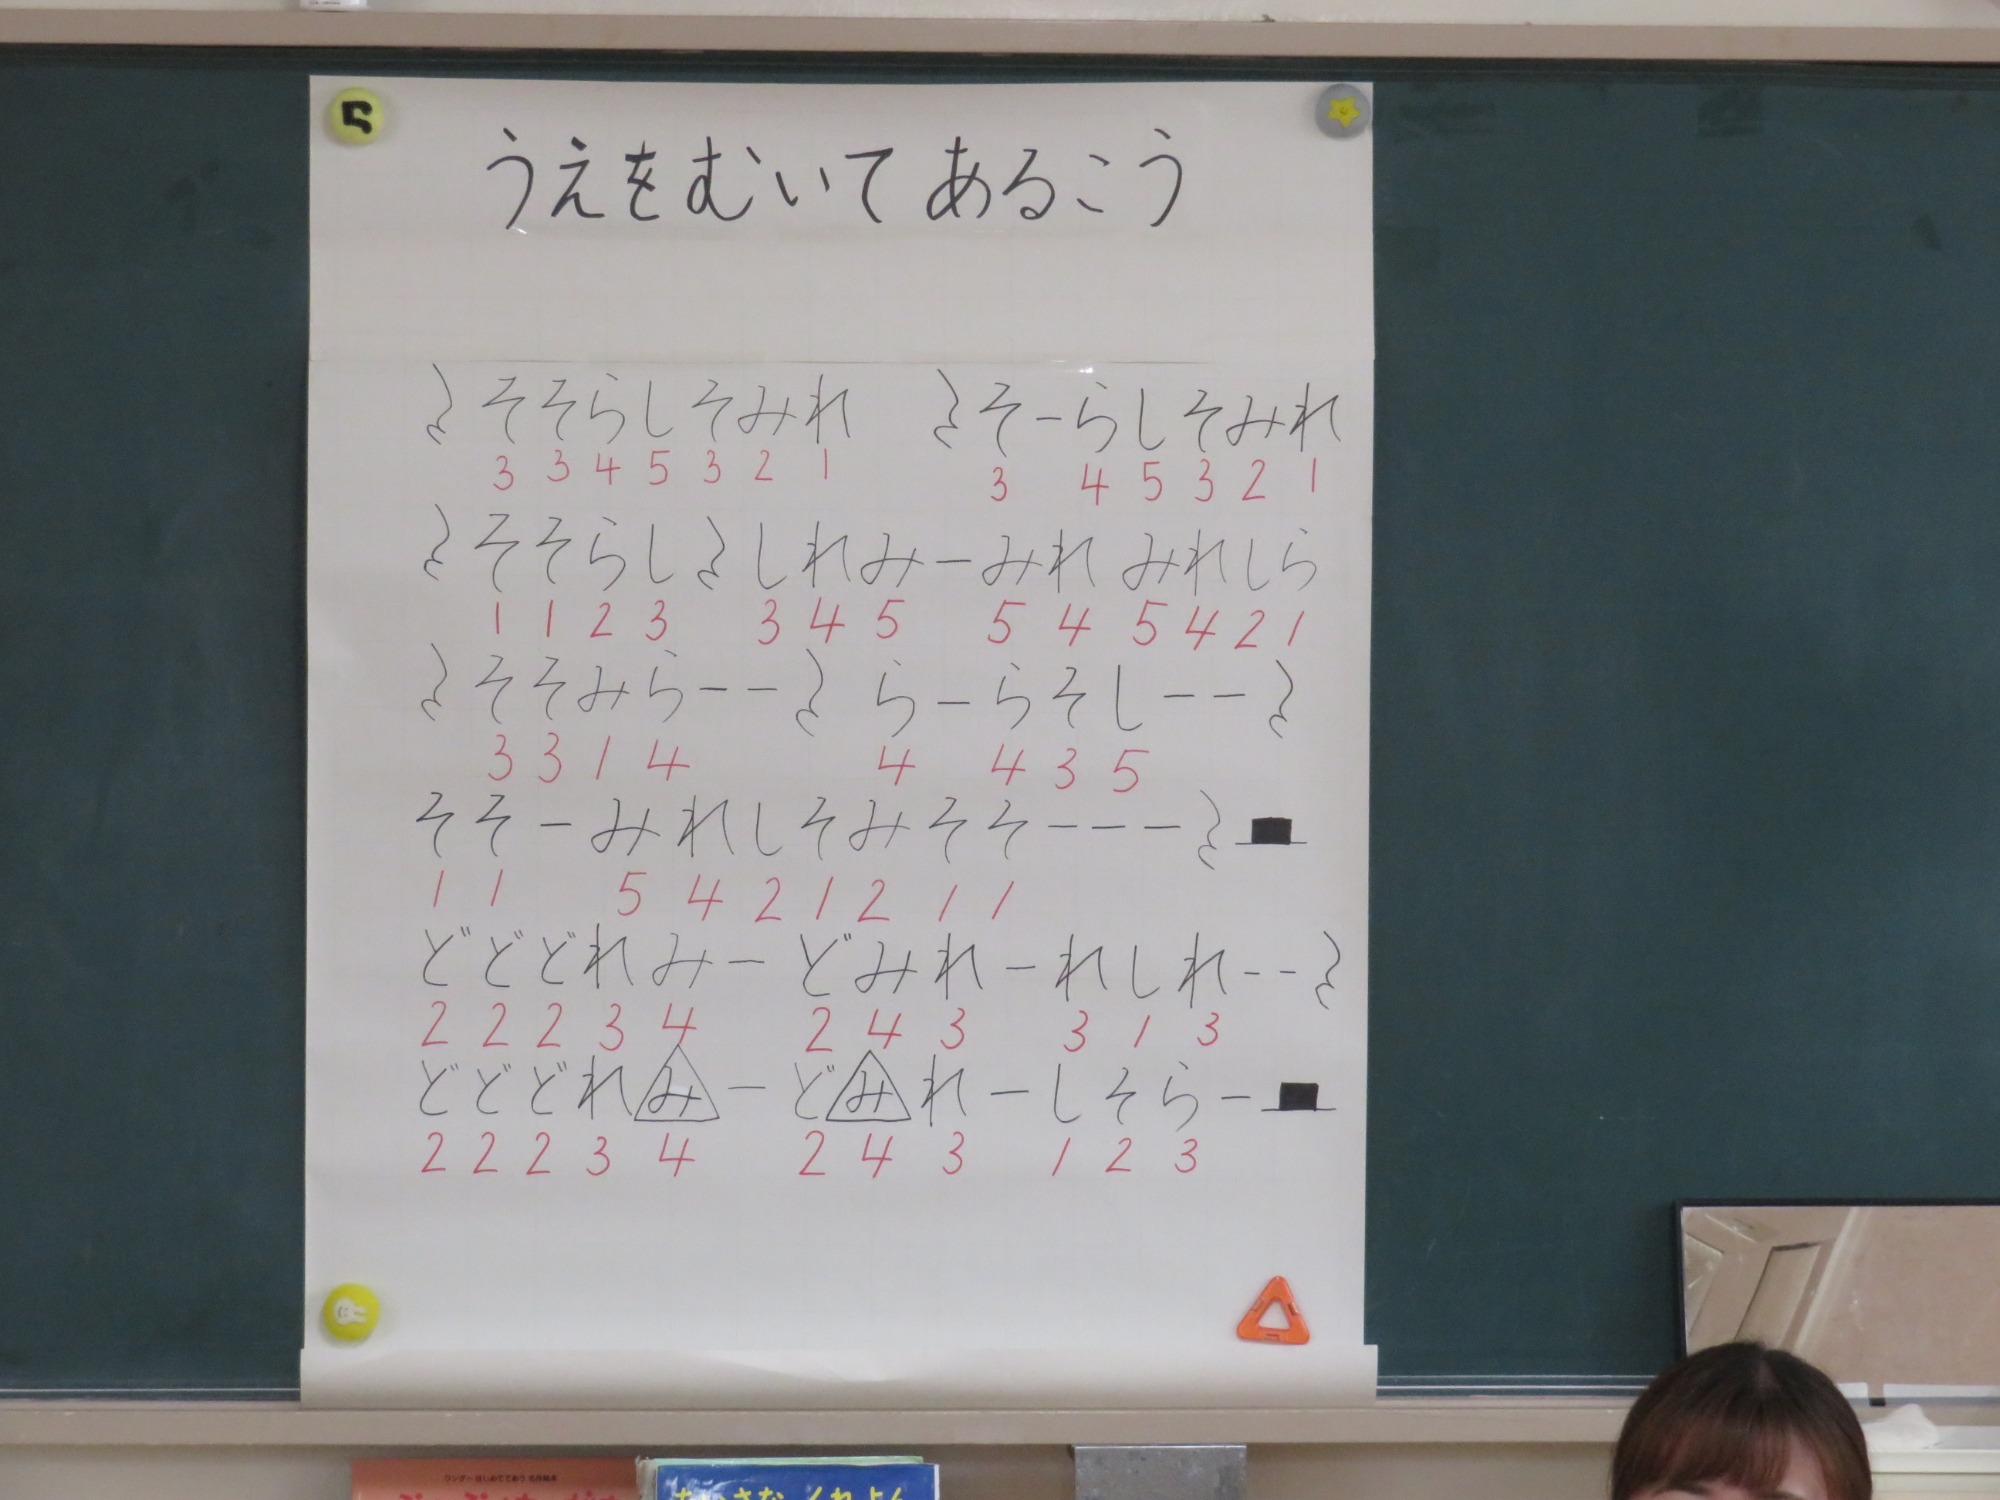 うえをむいて あるこう
𝄽そそらしそみれ 𝄽そーらしそみれ
3 3 4 5 3 2 1 3 4 5 3 2 1
𝄽そそらし𝄽しれみーみれ みれしら
1 1 2 3 3 4 5 5 4 5 4 2 1
𝄽そそみらーー𝄽 らーらそしーー𝄽
3 3 1 4 4 4 3 5
そそーみれしそみそそーーー𝄽𝄼
1 1 5 4 2 1 2 1 1
どどどれみーどみれーれしれーー𝄽
2 2 2 3 4 2 4 3 3 1 3
どどどれみーどみれーしそらー𝄼
2 2 2 3 4 2 4 3 1 2 3